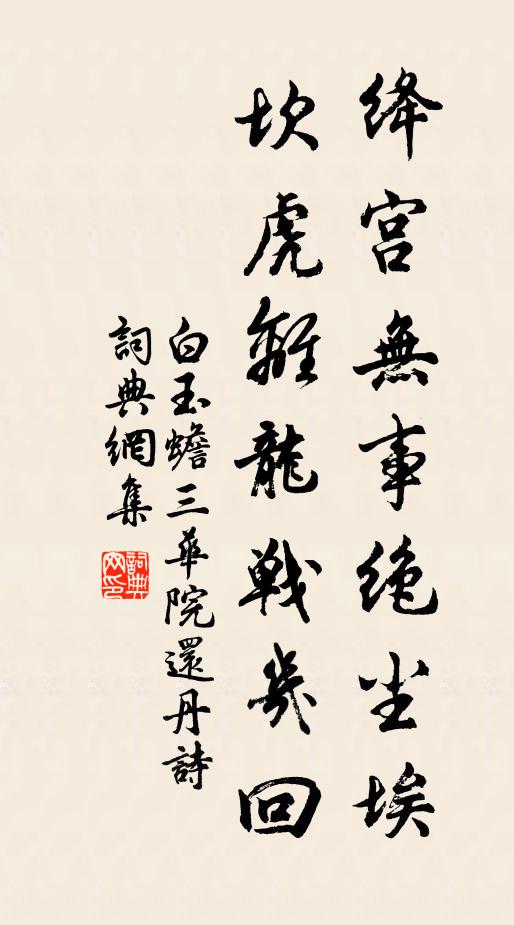 绛宫無事绝尘埃
坎虎離龍戦幾回
白玉蟾三華院還丹詩
詞典網集
詞典網印